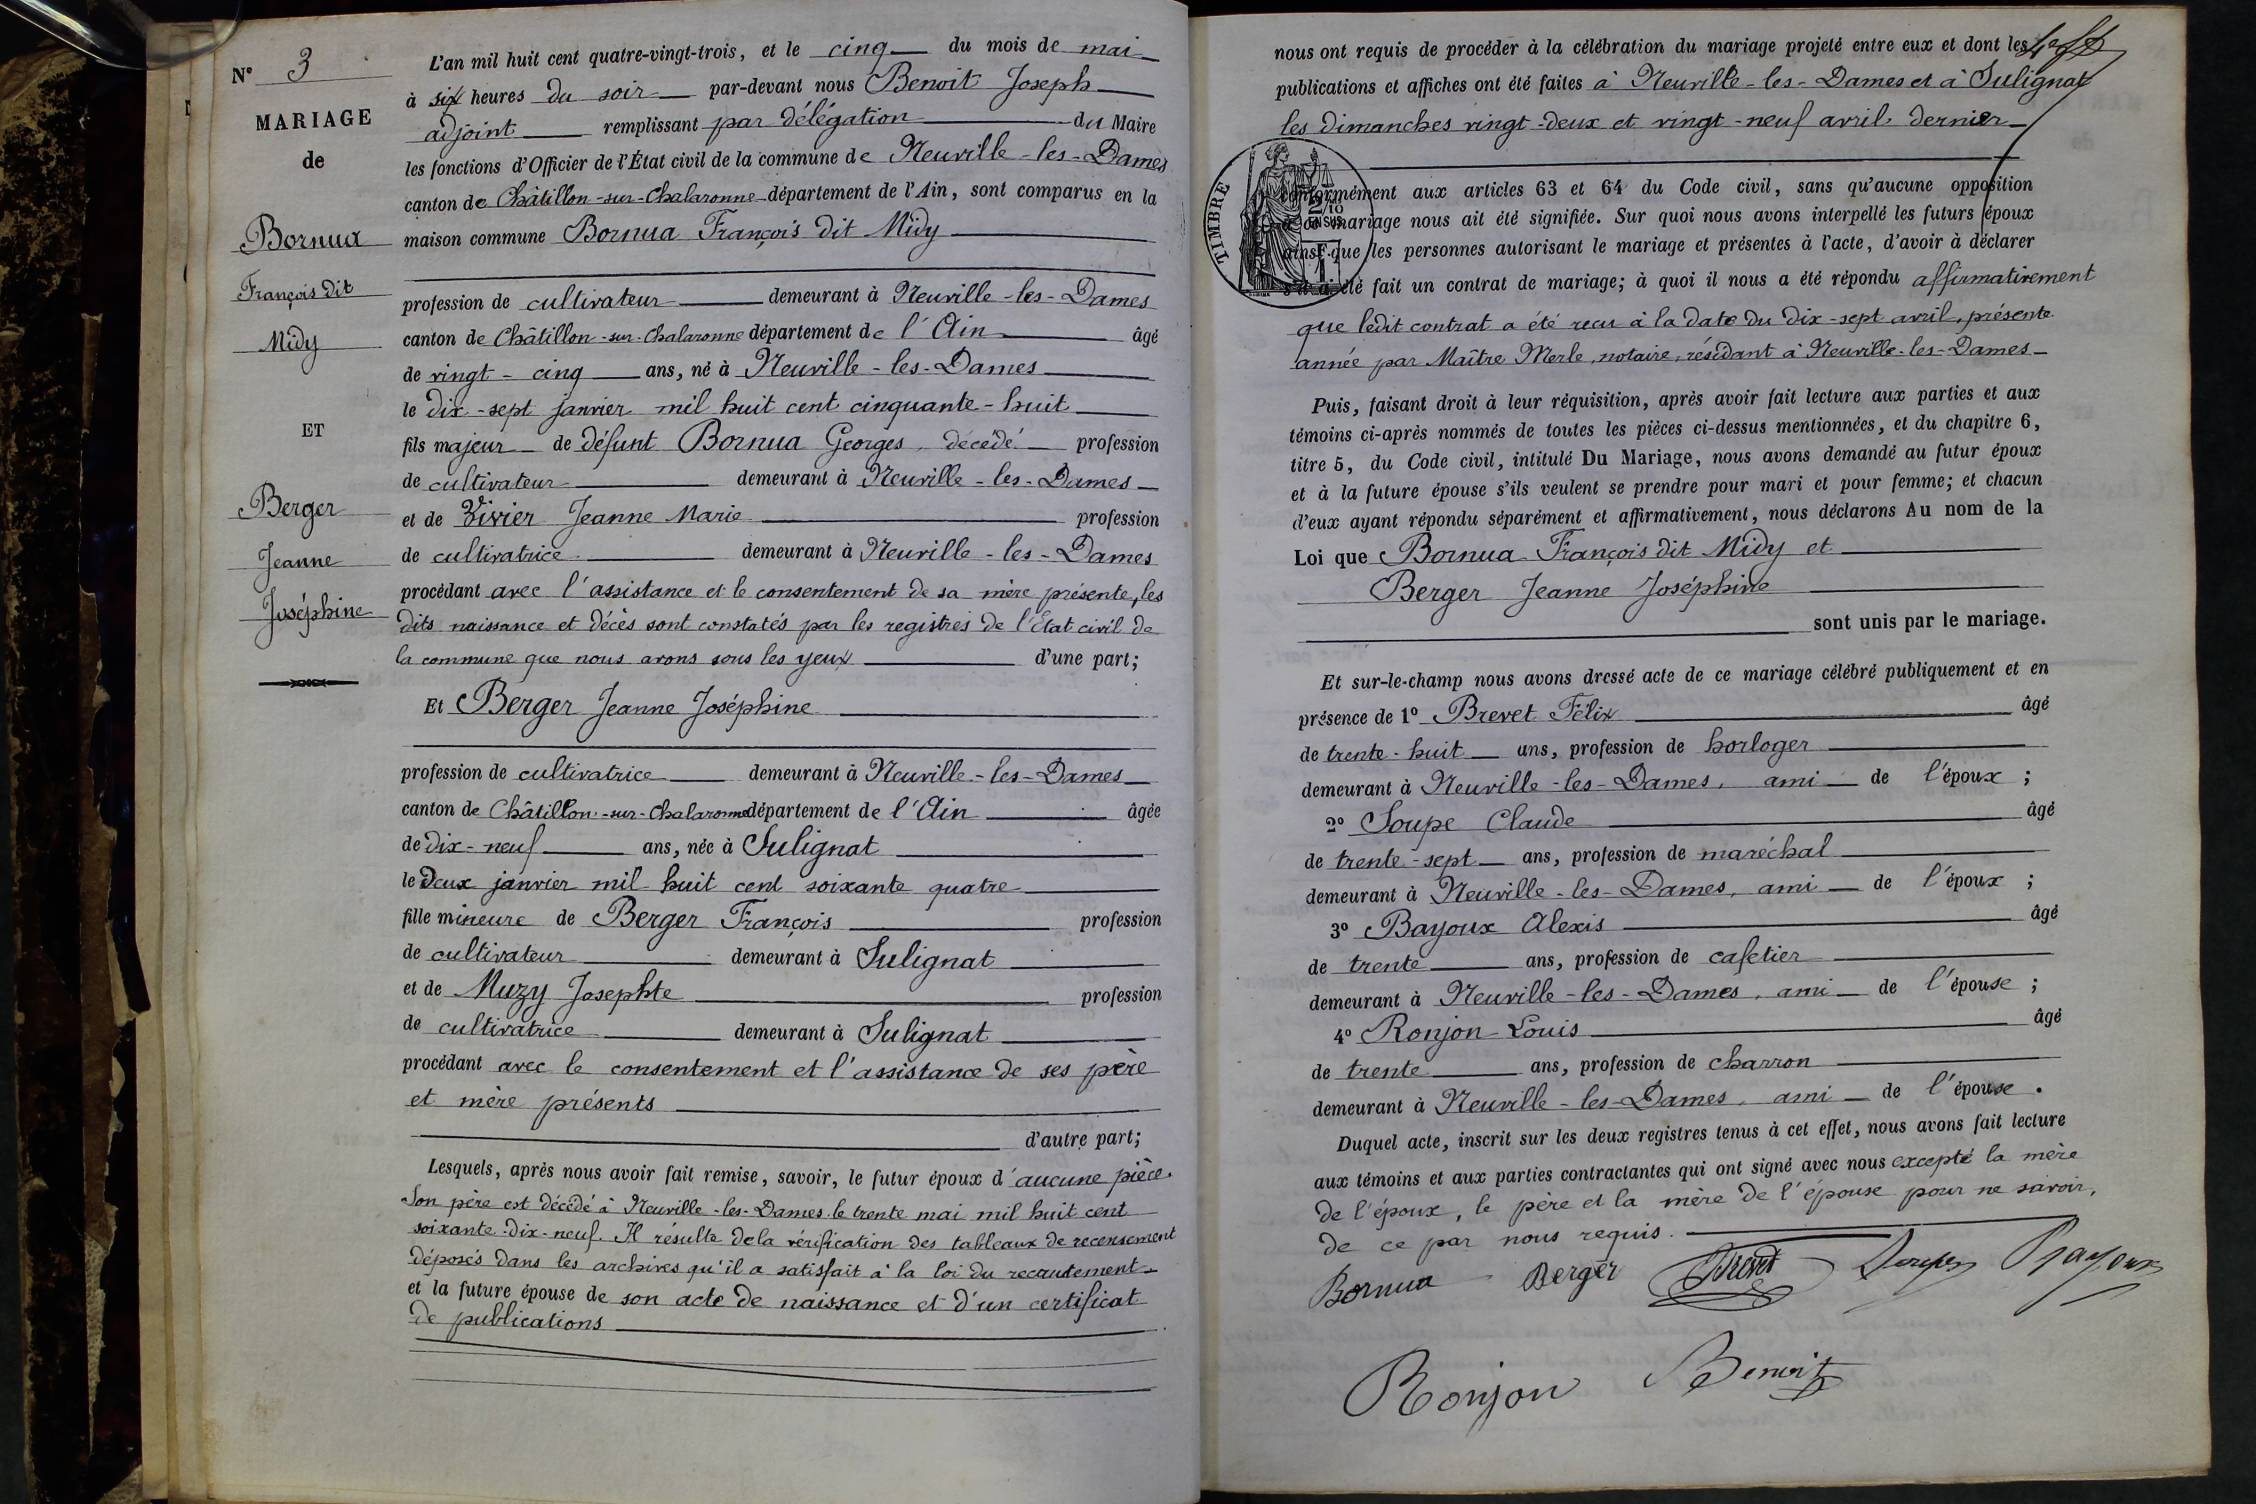 N° 3
MARIAGE
de
Bornua
François dit
Midy
ET
Berger
Jeanne
Joséphine
L'an mil huit cent quatre-vingt-trois, et le cinq du mois de mai
à six heures du soir par-devant nous Benoit Joseph
adjoint remplissant par délégation du Maire
les fonctions d'Officier de l'État civil de la commune de Neuville-les-Dames
canton de Châtillon-sur-Chalaronne département de l'Ain, sont comparus en la
maison commune Bornua François dit Midy
profession de cultivateur demeurant à Neuville-les-Dames
canton de Châtillon-sur-Chalaronne département de l'Ain âgé
de vingt-cinq ans, né à Neuville-les-Dames
le dix-sept janvier mil huit cent cinquante-huit
fils majeur de défunt Bornua Georges, décédé profession
de cultivateur demeurant à Neuville-les-Dames
et de Vivier Jeanne Marie profession
de cultivatrice demeurant à Neuville-les-Dames
procédant avec l'assistance et le consentement de sa mère présente, les
dits naissance et décès sont constatés par les registres de l'Etat civil de
la commune que nous avons sous les yeux d'une part;
Et Berger Jeanne Joséphine
profession de cultivatrice demeurant à Neuville-les-Dames
canton de Châtillon-sur-Chalaronne département de l'Ain âgée
de dix-neuf ans, née à Sulignat
le deux janvier mil huit cent soixante quatre
fille mineure de Berger François profession
de cultivateur demeurant à Sulignat
et de Muzy Josephte profession
de cultivatrice demeurant à Sulignat
procédant avec le consentement et l'assistance de ses père
et mère présents
d'autre part;
Lesquels, après nous avoir fait remise, savoir, le futur époux d'aucune pièce.
Son père est décédé à Neuville-les-Dames le trente mai mil huit cent
soixante-dix-neuf. Il résulte de la vérification des tableaux de recensement
déposés dans les archives qu'il a satisfait à la loi du recrutement
et la future épouse de son acte de naissance et d'un certificat
de publications
nous ont requis de procéder à la célébration du mariage projeté entre eux et dont les
publications et affiches ont été faites à Neuville-les-Dames et à Sulignat
les dimanches vingt-deux et vingt-neuf avril dernier
TIMBRE
conformément aux articles 63 et 64 du Code civil, sans qu'aucune opposition
à ce mariage nous ait été signifiée. Sur quoi nous avons interpellé les futurs époux
ainsi que les personnes autorisant le mariage et présentes à l'acte, d'avoir à déclarer
s'il a été fait un contrat de mariage; à quoi il nous a été répondu affirmativement
que ledit contrat a été recu à la date du dix-sept avril, présente
année par Maître Merle, notaire, résidant à Neuville-les-Dames
Puis, faisant droit à leur réquisition, après avoir fait lecture aux parties et aux
témoins ci-après nommés de toutes les pièces ci-dessus mentionnées, et du chapitre 6,
titre 5, du Code civil, intitulé Du Mariage, nous avons demandé au futur époux
et à la future épouse s'ils veulent se prendre pour mari et pour femme; et chacun
d'eux ayant répondu séparément et affirmativement, nous déclarons Au nom de la
Loi que Bornua François dit Midy et
Berger Jeanne Joséphine
sont unis par le mariage.
Et sur-le-champ nous avons dressé acte de ce mariage célébré publiquement et en
présence de 1° Brevet Félix âgé
de trente-huit ans, profession de horloger
demeurant à Neuville-les-Dames, ami de l'époux ;
2° Soupe Claude âgé
de trente-sept ans, profession de maréchal
demeurant à Neuville-les-Dames, ami de l'époux ;
3° Bayoux Alexis âgé
de trente ans, profession de cafetier
demeurant à Neuville-les-Dames, ami de l'épouse ;
4° Ronjon Louis âgé
de trente ans, profession de charron
demeurant à Neuville-les-Dames, ami de l'épouse .
Duquel acte, inscrit sur les deux registres tenus à cet effet, nous avons fait lecture
aux témoins et aux parties contractantes qui ont signé avec nous excepté la mère
de l'époux, le père et la mère de l'épouse pour ne savoir,
de ce par nous requis.
Bornua Berger Brevet Soupe Bayoux
Ronjon Benoit